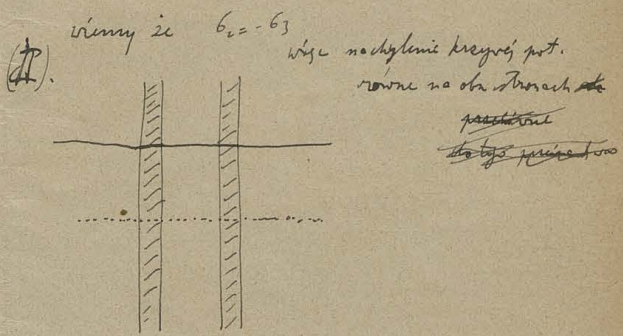 wiemy że σ₂ = -σ₃
więc nachylenie krzywej pot.
równe na obu stronach